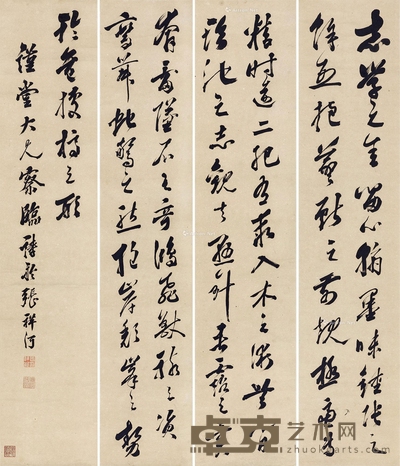 志學之年留心翰墨味鍾張之
餘烈挹羲獻之前規極慮專
精時逾二紀有乖入木之術無間
臨池之志觀夫懸針垂露之異
奔雷墜石之奇鴻飛獸駭之資
鸞舞蛇驚之態絕岸頹峰之勢
臨危據槁之形
堂大兄寮臨 詩舲張祥河
艺术网